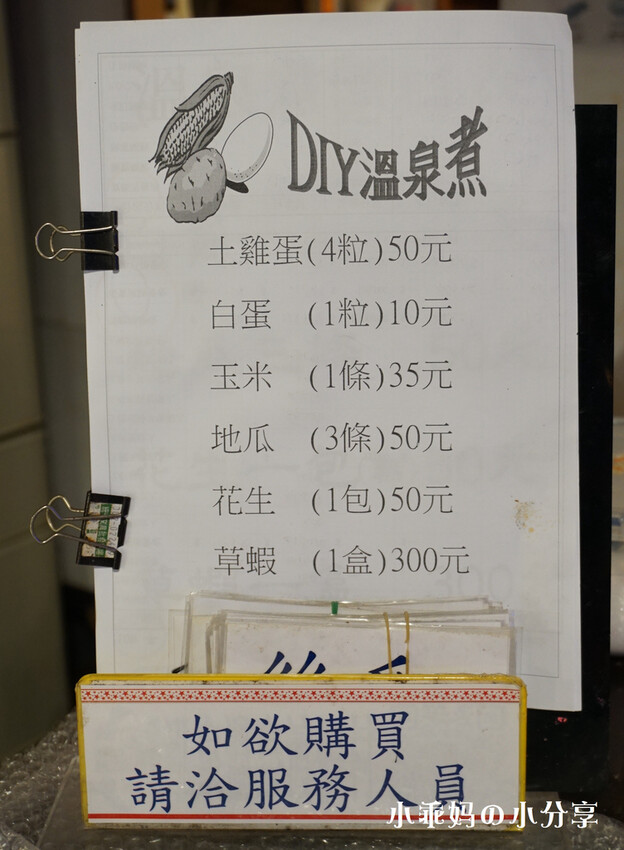 DIY溫泉煮
土雞蛋(4粒)50元
白蛋 (1粒)10元
玉米 (1條)35元
地瓜 (3條)50元
花生 (1包)50元
草蝦 (1盒)300元
如欲購買
請洽服務人員
小乖妈の小分享